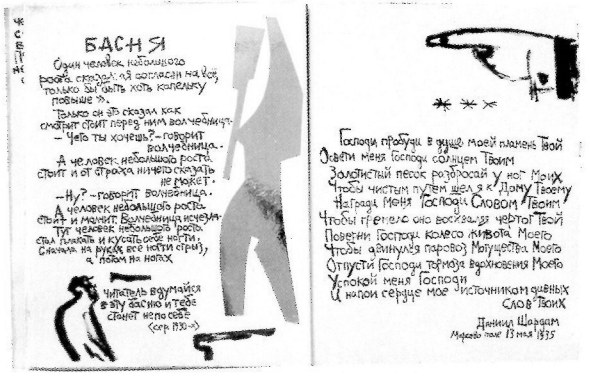 БАСНЯ
Один человек небольшого
роста сказал: «Я согласен на всё,
только бы быть хоть капельку
повыше».
Только он это сказал как
смотрит стоит перед ним волчебница.
– Чего ты хочешь? – говорит
волчебница.
А человек небольшого роста
стоит и от страха ничего сказать
не может.
– Ну? – говорит волчебница.
А человек небольшого роста
стоит и молчит. Волчебница исчезла.
Тут человек небольшого роста
стал плакать и кусать себе ногти.
Сначала на руках все ногти сгрыз,
а потом на ногах
Читатель вдумайся
в эту басню и тебе
станет не по себе
<сер. 1930-х>
* * *
Господи пробуди в душе моей пламень Твой
Освети меня Господи солнцем Твоим
Золотистый песок разбросай у ног Моих
Чтобы чистым путем шел я к Дому Твоему
Награди меня Господи Словом Твоим
Чтобы гремело оно восхваляя чертог Твой
Поверни Господи колесо живота Моего
Чтобы двинулся паровоз Могущества Моего
Отпусти Господи тормоза вдохновения Моего
Успокой меня Господи
И напои сердце мое источником дивных
Слов Твоих
Даниил Шардам
Марсово поле 13 мая 1935